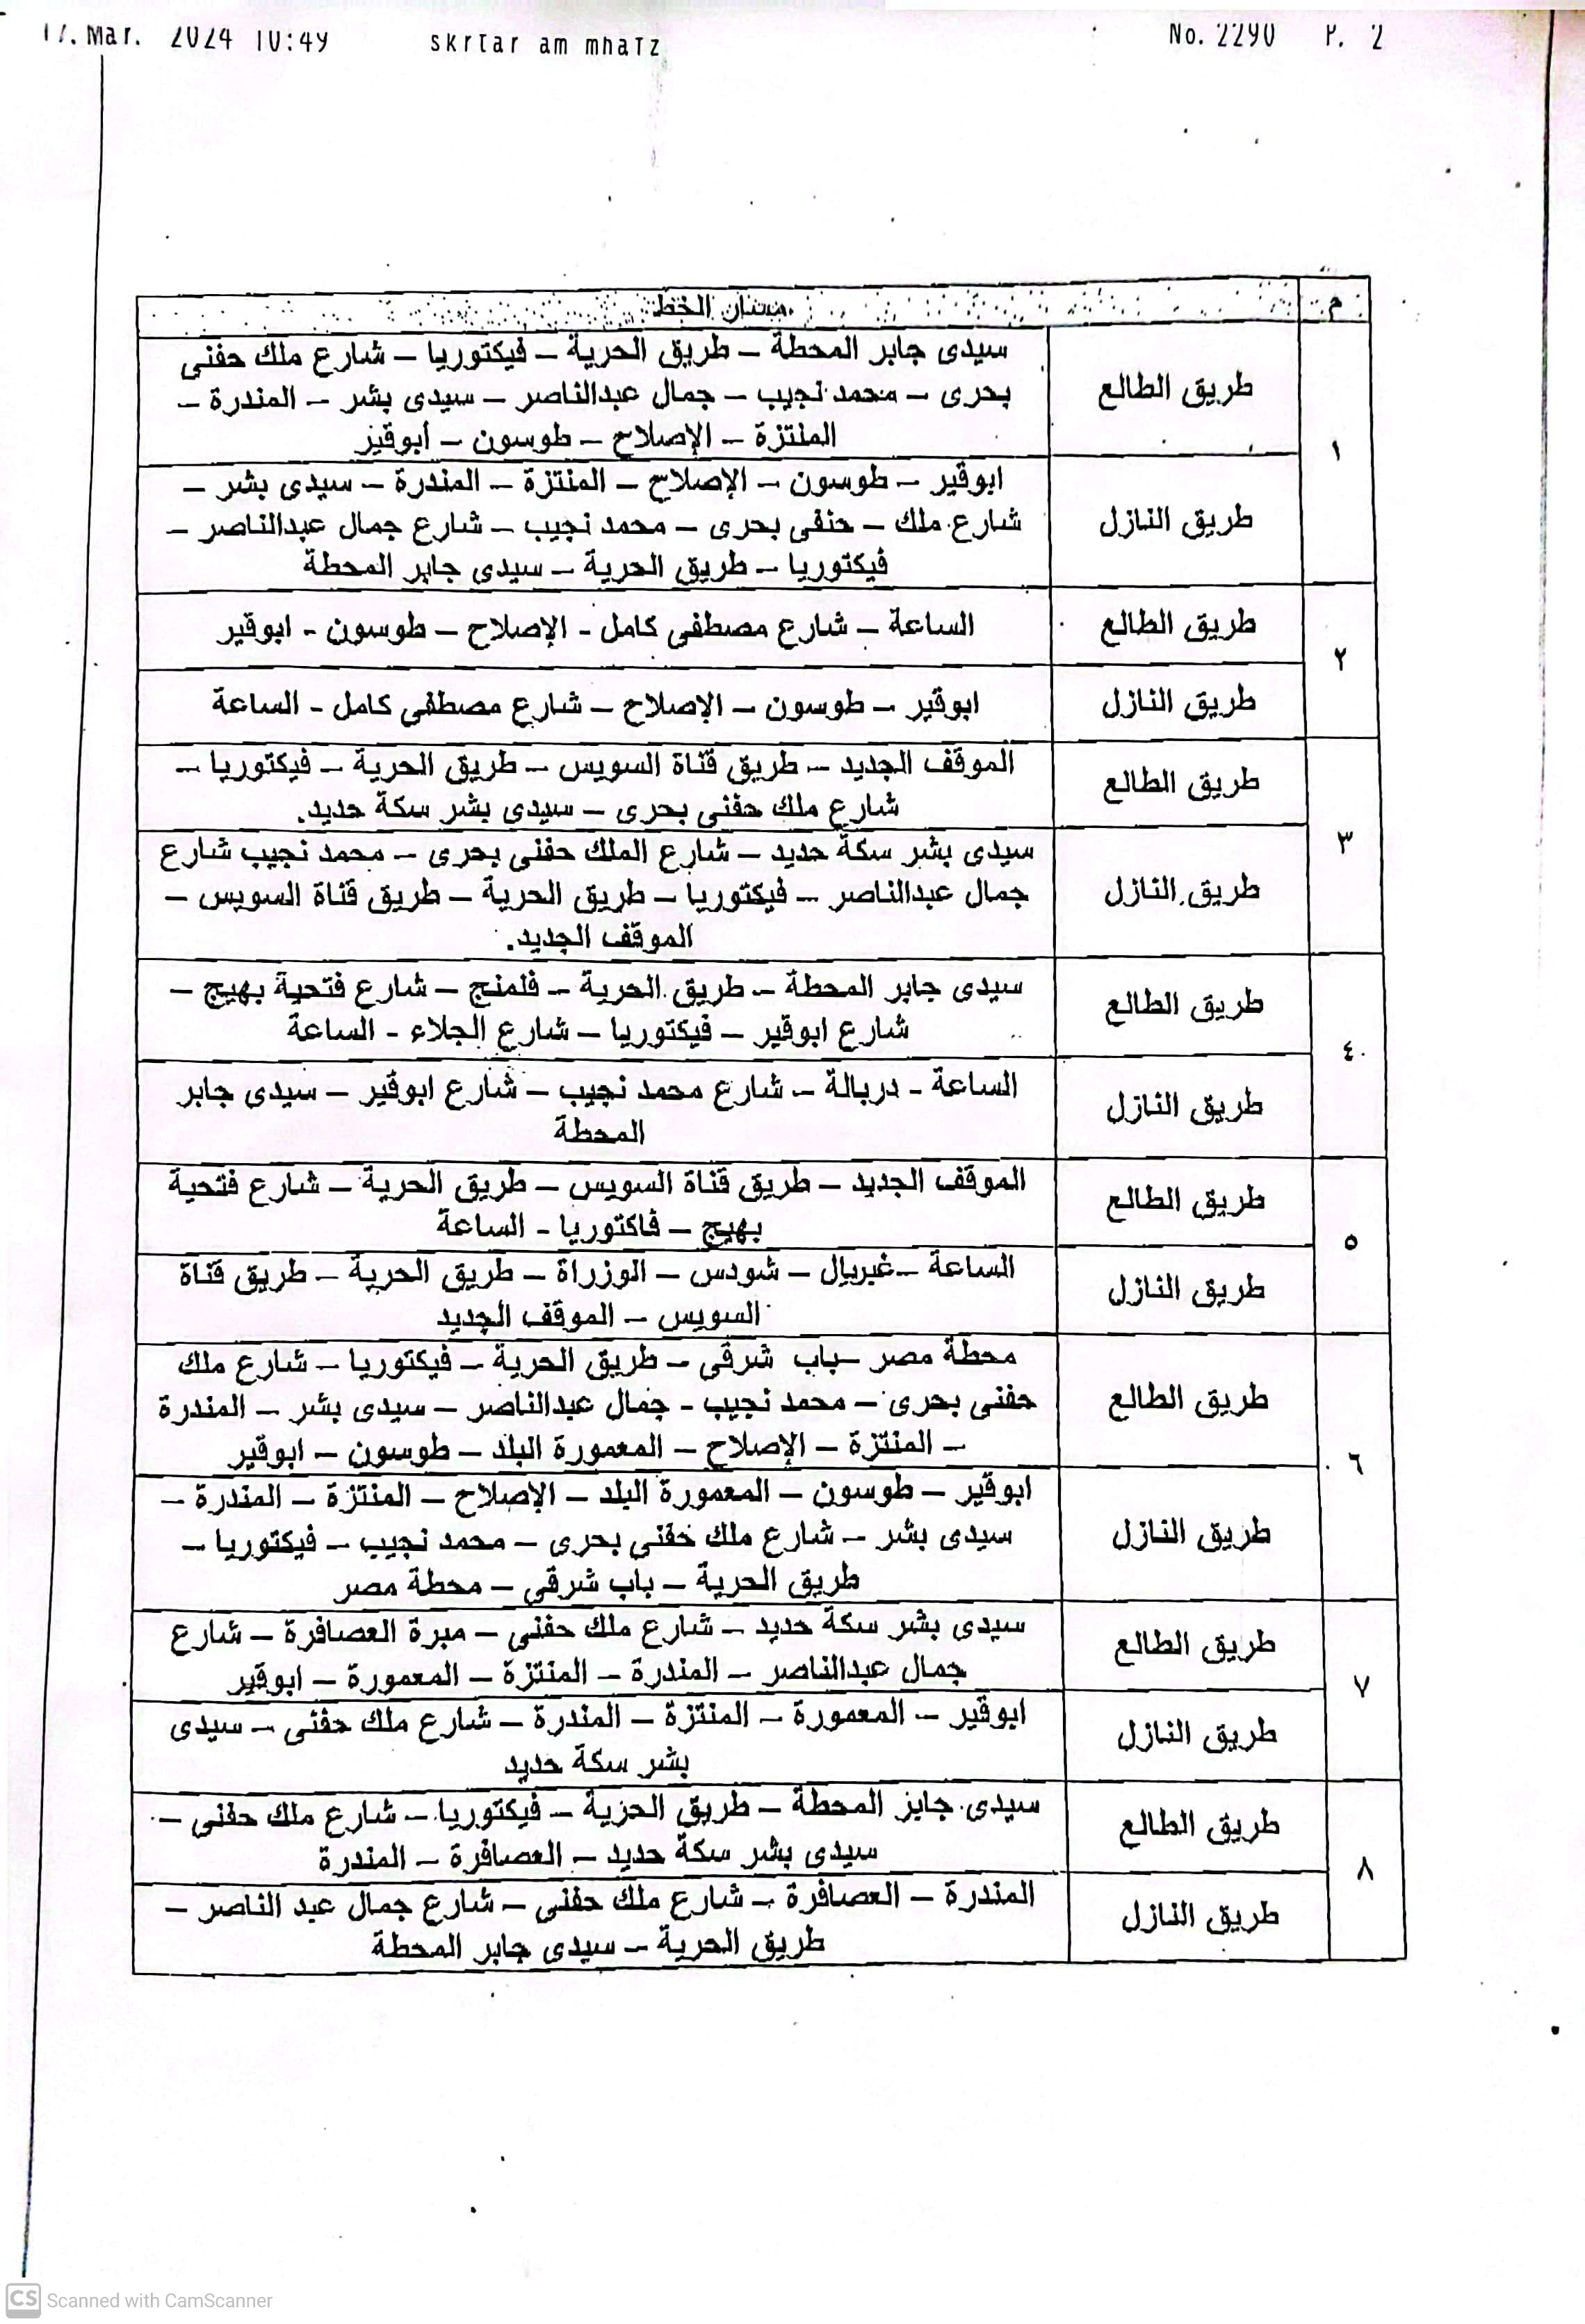 17. Mar. 2024 10:49 skrtar am mhatz No. 2290 P. 2
م
مسار الخط
١
طريق الطالع
سيدى جابر المحطة – طريق الحرية – فيكتوريا – شارع ملك حفنى
بحرى – محمد نجيب – جمال عبدالناصر – سيدى بشر – المندرة –
المنتزة – الإصلاح – طوسون – أبوقير
طريق النازل
ابوقير – طوسون – الإصلاح – المنتزة – المندرة – سيدى بشر –
شارع ملك – حنفى بحرى – محمد نجيب – شارع جمال عبدالناصر –
فيكتوريا – طريق الحرية – سيدى جابر المحطة
٢
طريق الطالع
الساعة – شارع مصطفى كامل - الإصلاح – طوسون - ابوقير
طريق النازل
ابوقير – طوسون – الإصلاح – شارع مصطفى كامل - الساعة
٣
طريق الطالع
الموقف الجديد – طريق قناة السويس – طريق الحرية – فيكتوريا –
شارع ملك حفنى بحرى – سيدى بشر سكة حديد.
طريق النازل
سيدى بشر سكة حديد – شارع الملك حفنى بحرى – محمد نجيب شارع
جمال عبدالناصر – فيكتوريا – طريق الحرية – طريق قناة السويس –
الموقف الجديد.
٤
طريق الطالع
سيدى جابر المحطة – طريق الحرية – فلمنج – شارع فتحية بهيج –
شارع ابوقير – فيكتوريا – شارع الجلاء - الساعة
طريق النازل
الساعة - دربالة – شارع محمد نجيب – شارع ابوقير – سيدى جابر
المحطة
٥
طريق الطالع
الموقف الجديد – طريق قناة السويس – طريق الحرية – شارع فتحية
بهيج – فاكتوريا - الساعة
طريق النازل
الساعة –غبريال – شودس – الوزراة – طريق الحرية – طريق قناة
السويس – الموقف الجديد
٦
طريق الطالع
محطة مصر –باب شرقى – طريق الحرية – فيكتوريا – شارع ملك
حفنى بحرى – محمد نجيب - جمال عبدالناصر – سيدى بشر – المندرة
– المنتزة – الإصلاح – المعمورة البلد – طوسون – ابوقير
طريق النازل
ابوقير – طوسون – المعمورة البلد – الإصلاح – المنتزة – المندرة –
سيدى بشر – شارع ملك حفنى بحرى – محمد نجيب – فيكتوريا –
طريق الحرية – باب شرقى – محطة مصر
٧
طريق الطالع
سيدى بشر سكة حديد – شارع ملك حفنى – مبرة العصافرة – شارع
جمال عبدالناصر – المندرة – المنتزة – المعمورة – ابوقير
طريق النازل
ابوقير – المعمورة – المنتزة – المندرة – شارع ملك حفنى – سيدى
بشر سكة حديد
٨
طريق الطالع
سيدى جابر المحطة – طريق الحرية – فيكتوريا – شارع ملك حفنى –
سيدى بشر سكة حديد – العصافرة – المندرة
طريق النازل
المندرة – العصافرة – شارع ملك حفنى – شارع جمال عبد الناصر –
طريق الحرية – سيدى جابر المحطة
CS Scanned with CamScanner